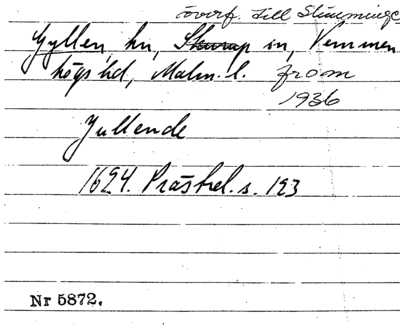 överf. till Slimminge
Gyllen, hn, Skurup sn, Vemmen
högs hd, Malm. l. from
1936
Jullende
1624. Prästrel. s. 193
Nr 5872.